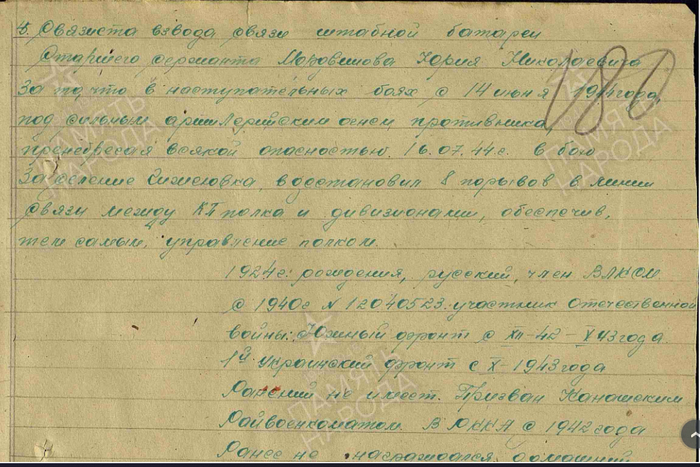 15. Связиста взвода связи штабной батареи
Старшего сержанта Юрия Николаевича
За то, что в наступательных боях с 14 июня 1944 года,
под сильным артиллерийским огнем противника,
пренебрегая всякой опасностью, 16.07.44г. в бою
За селение восстановил 8 порывов в линии
связи между КП полка и дивизионами, обеспечив,
тем самым, управление полком.
180
1924г. рождения, русский, член ВЛКСМ
с 1940г N 12040523. участник Отечественной
войны: Южный фронт с XII-42 - X 43 года
1й Украинский фронт с X-1943 года
Ранений не имеет. Призван
Райвоенкоматом. В РККА с 1942 года
Ранее не награждался. домашний
ПАМЯТЬ НАРОДА
ПАМЯТЬ НАРОДА
ПАМЯТЬ НАРОДА
ПАМЯТЬ НАРОДА